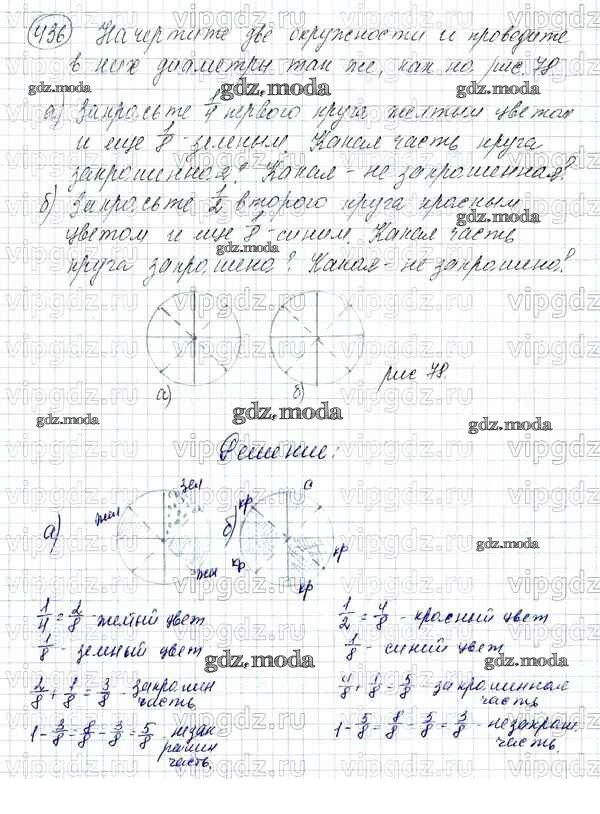 436 Начертите две окружности и проведите
в них диаметры так же, как на рис. 78
а) Закрасьте 1/4 первого круга желтым цветом
и еще 1/8 - зеленым. Какая часть круга
закрашенная? Какая - не закрашенная?
б) Закрасьте 1/2 второго круга красным
цветом и еще 1/8 - синим. Какая часть
круга закрашена? Какая - не закрашена?
а) б) рис 78.
gdz.moda
Решение:
а) жел зел жел
б) кр с кр кр кр
1/4 = 2/8 - желтый цвет
1/8 - зеленый цвет
2/8 + 1/8 = 3/8 - закрашен
часть
1 - 3/8 = 8/8 - 3/8 = 5/8 - незак
рашен
часть.
1/2 = 4/8 - красный цвет
1/8 - синий цвет
4/8 + 1/8 = 5/8 - закрашенная
часть
1 - 5/8 = 8/8 - 5/8 = 3/8 - незакраш.
часть.
vipgdz.ru